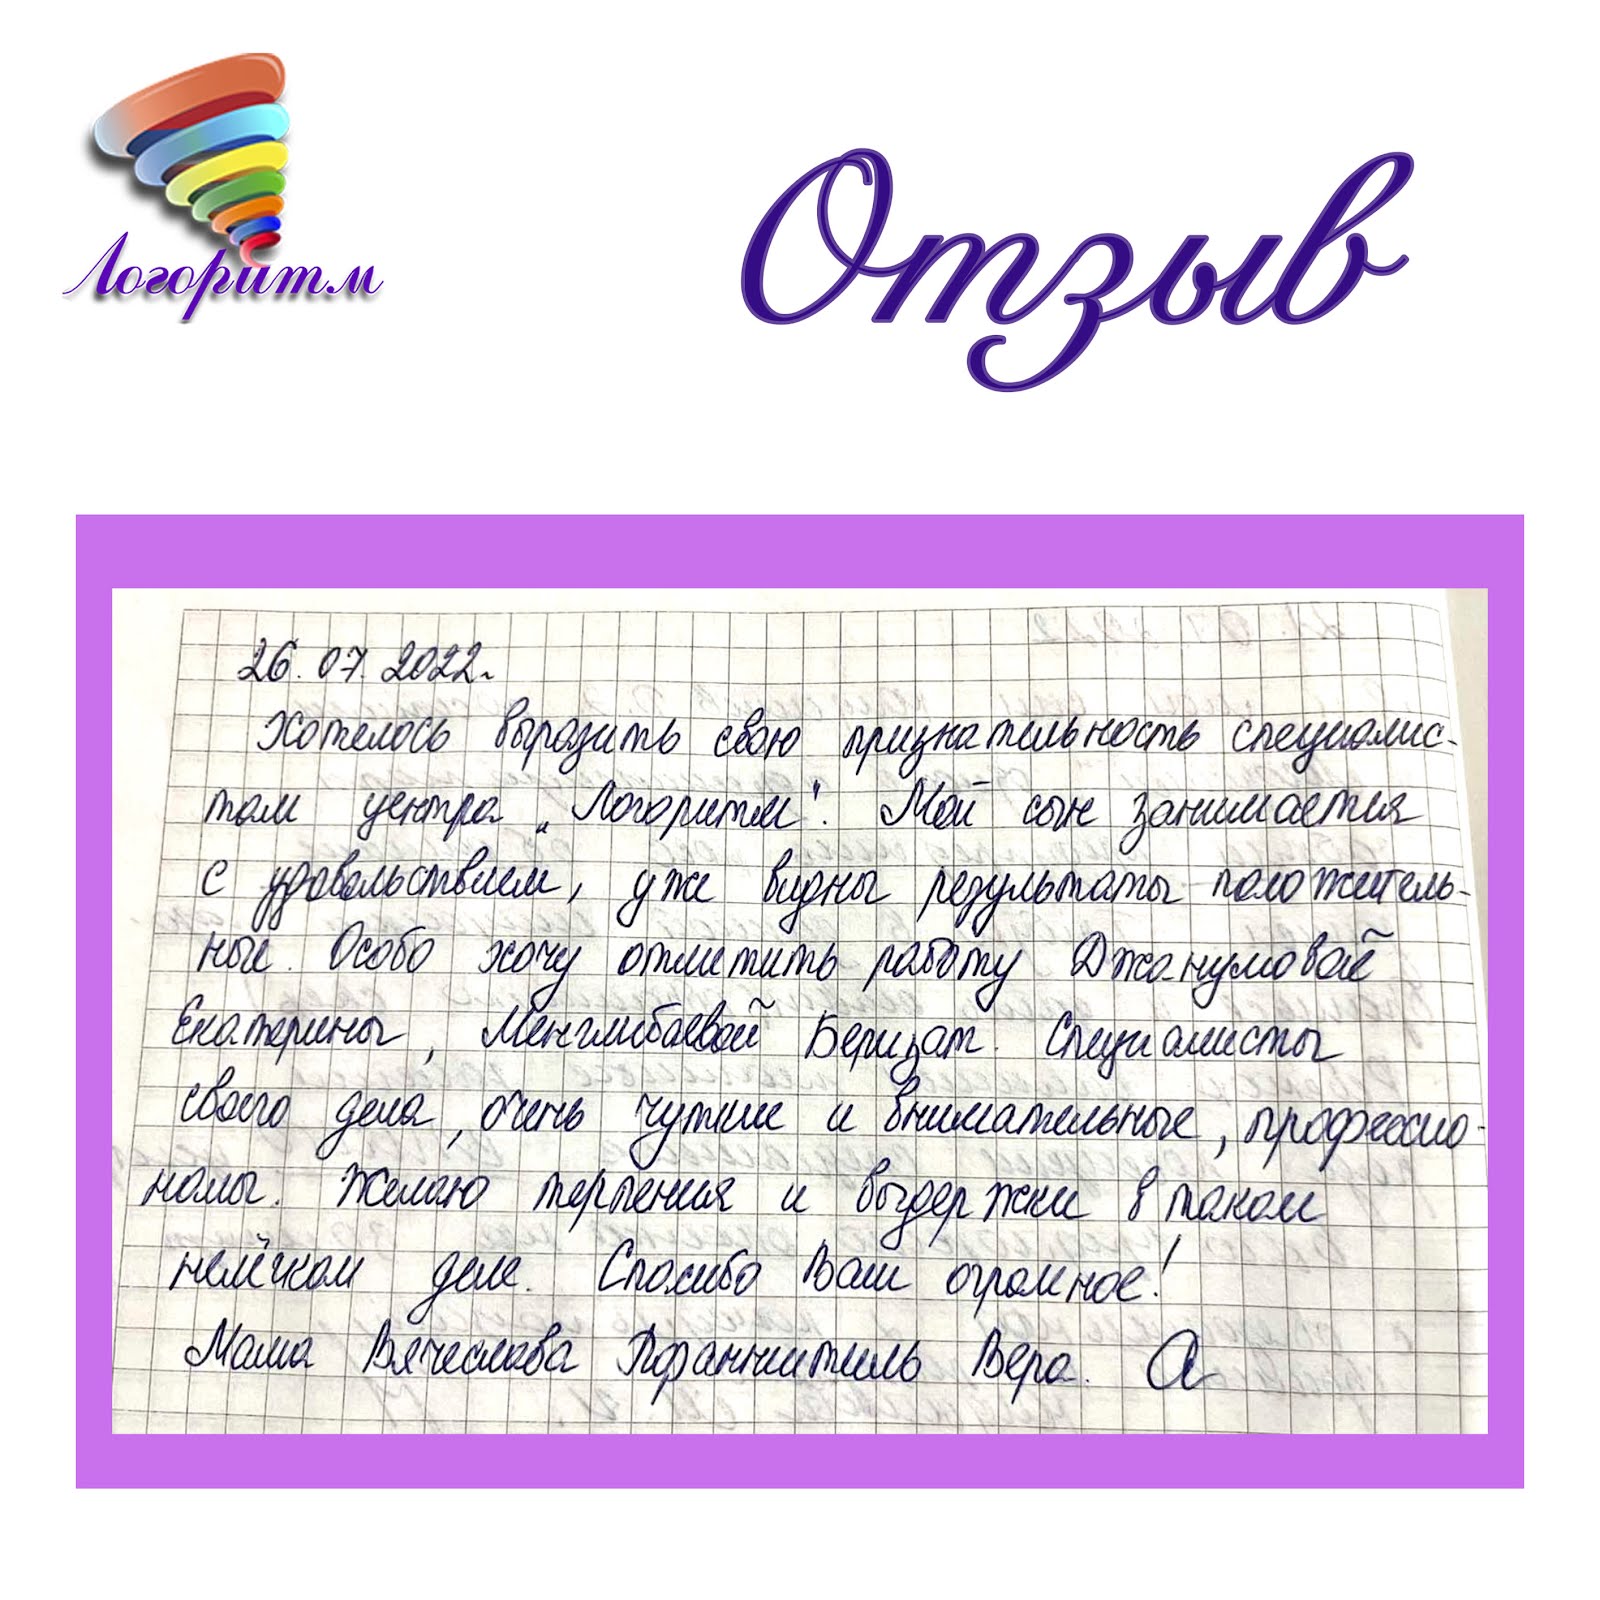 Логоритм
Отзыв
26.07.2022г.
Хотелось выразить свою признательность специалис-
там центра „Логоритм". Мой сын занимается
с удовольствием, уже видны результаты положитель-
ные. Особо хочу отметить работу Джанумовой
Екатерины, Менглибаевой Беризат. Специалисты
своего дела, очень чуткие и внимательные, профессио-
налы. Желаю терпения и выдержки в таком
нелёгком деле. Спасибо Вам огромное!
Мама Вячеслава Вера.